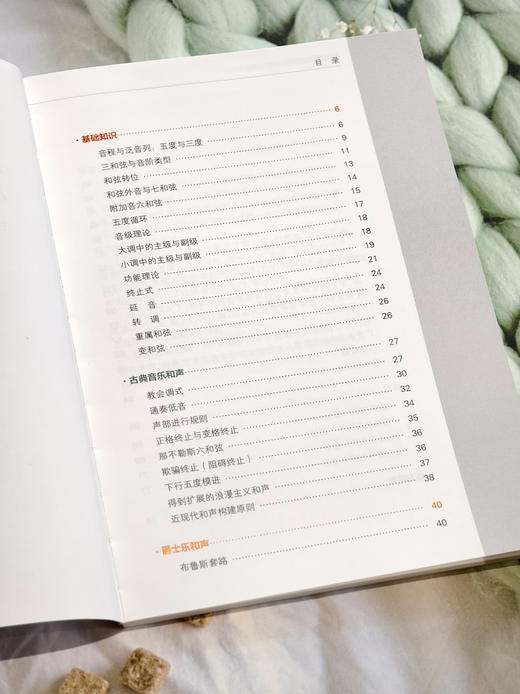 目 录
· 基础知识 6
音程与泛音列：五度与三度 6
三和弦与音阶类型 9
和弦转位 11
和弦外音与七和弦 13
附加音六和弦 14
五度循环 15
音级理论 17
大调中的主级与副级 18
小调中的主级与副级 18
功能理论 19
终止式 21
延 音 24
转 调 24
重属和弦 26
变和弦 26
· 古典音乐和声 27
教会调式 27
通奏低音 30
声部进行规则 32
正格终止与变格终止 34
那不勒斯六和弦 35
欺骗终止（阻碍终止） 36
下行五度模进 36
得到扩展的浪漫主义和声 37
近现代和声构建原则 38
· 爵士乐和声 40
布鲁斯套路 40